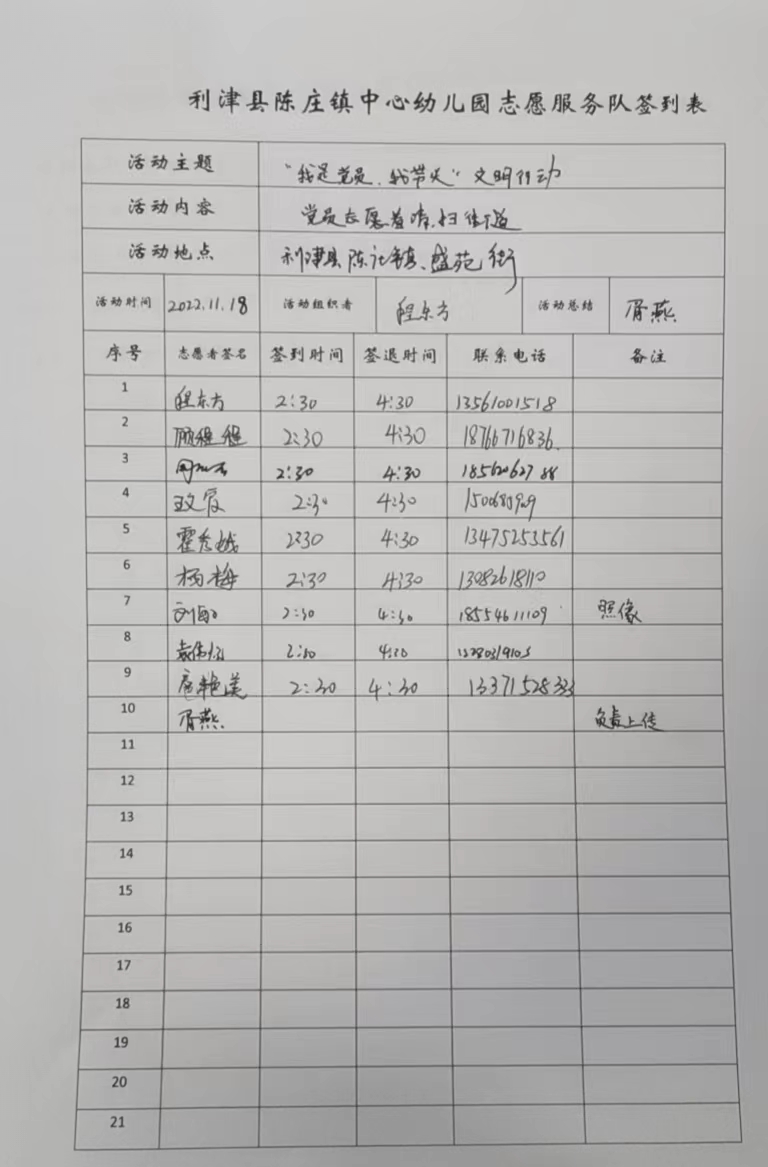 利津县陈庄镇中心幼儿园志愿服务队签到表
活动主题 “我是党员、我带头” 文明行动
活动内容 党员志愿者清扫街道
活动地点 利津县陈庄镇、盛苑街
活动时间 2022.11.18 活动组织者 程东方 活动总结 胥燕
序号 志愿者签名 签到时间 签退时间 联系电话 备注
1 程东方 2:30 4:30 13561001518
2 顾继继 2:30 4:30 18766716836
3 2:30 4:30
4 2:30 4:30
5 霍秀娥 2:30 4:30 13475253561
6 杨梅 2:30 4:30 13082618110
7 2:30 4:30 18554611109 照像
8
9 2:30 4:30 13371528333
10 胥燕 负责上传
11
12
13
14
15
16
17
18
19
20
21